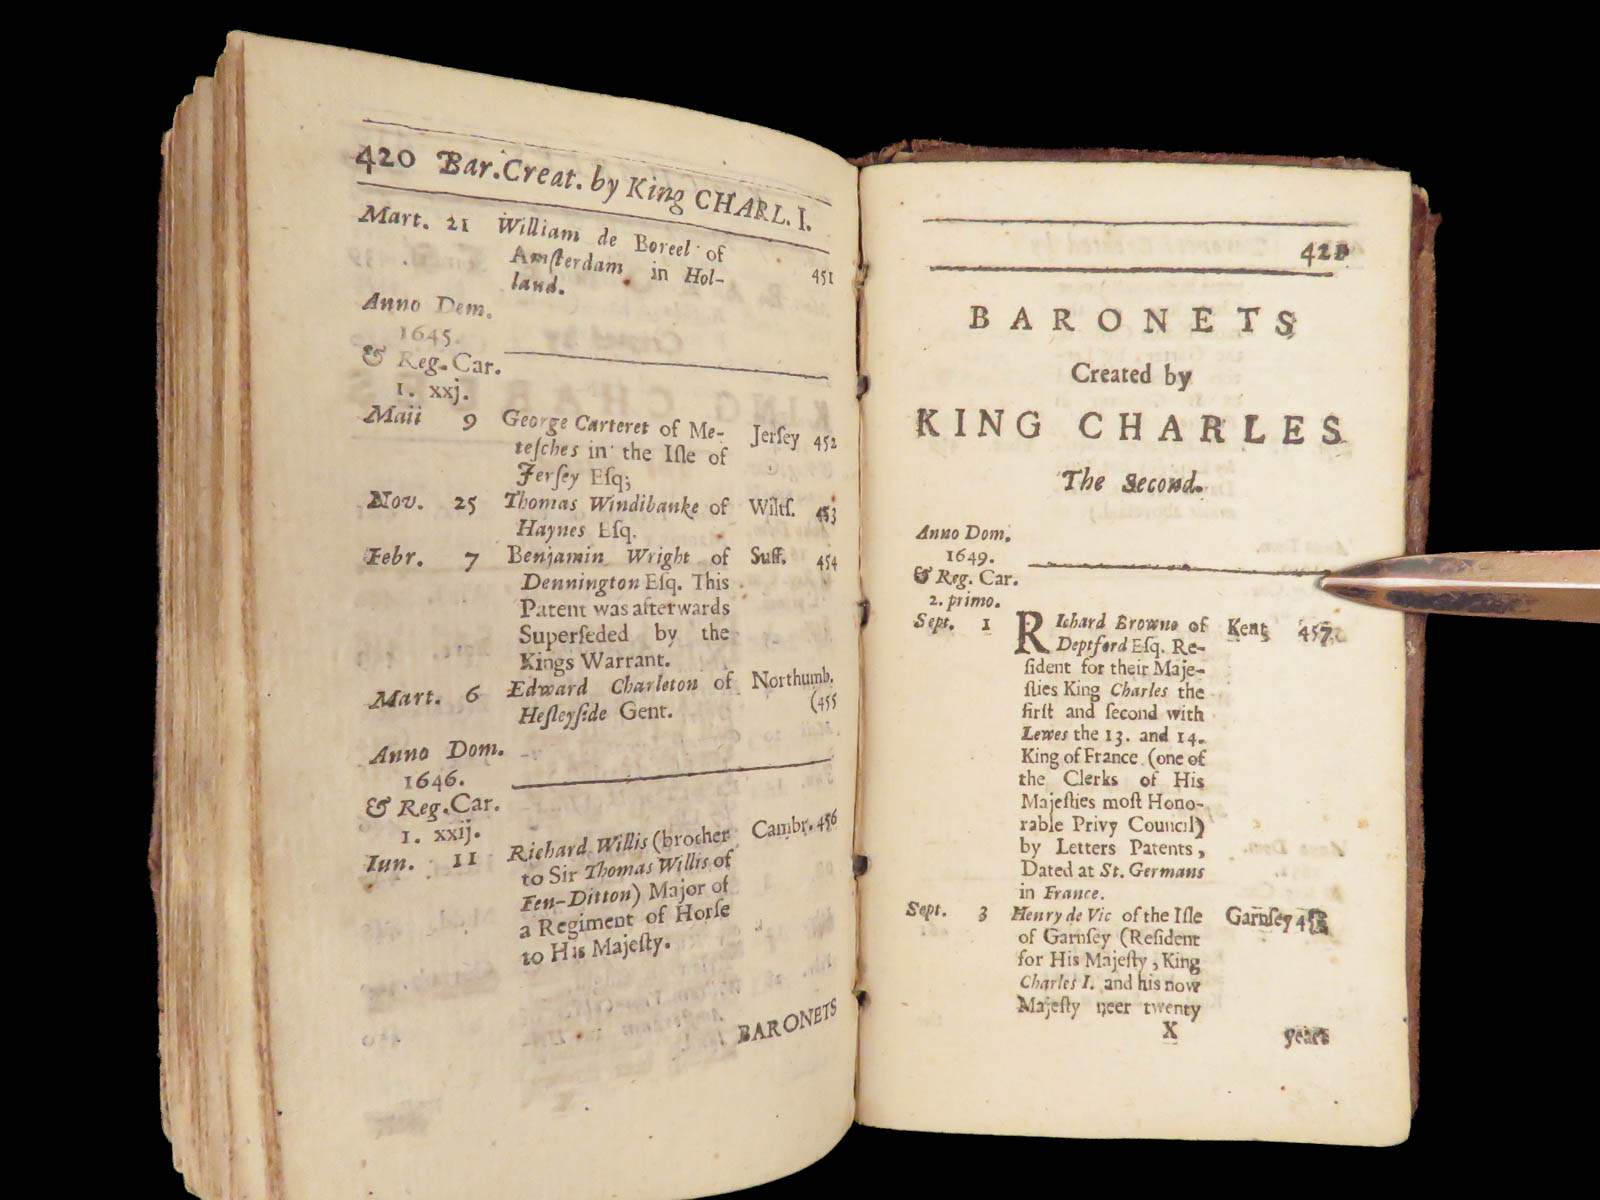 420 Bar. Creat. by King CHARL. I.
Mart. 21 William de Boreel of
Amſterdam in Hol- 451
land.
Anno Dem.
1645.
& Reg. Car.
1. xxj.
Maii 9 George Carteret of Me- Jerſey 452
teſches in the Iſle of
Jerſey Eſq;
Nov. 25 Thomas Windibanke of Wiltſ. 453
Haynes Eſq.
Febr. 7 Benjamin Wright of Suff. 454
Dennington Eſq. This
Patent was afterwards
Superſeded by the
Kings Warrant.
Mart. 6 Edward Charleton of Northumb.
Heſleyſide Gent. (455
Anno Dom.
1646.
& Reg. Car.
1. xxij.
Iun. 11 Richard Willis (brother Cambr. 456
to Sir Thomas Willis of
Fen-Ditton) Major of
a Regiment of Horſe
to His Majeſty.
BARONETS
421
BARONETS
Created by
KING CHARLES
The Second.
Anno Dom.
1649.
& Reg. Car.
2. primo.
Sept. 1 RIchard Browne of Kent 457
Deptford Eſq. Re-
ſident for their Maje-
ſties King Charles the
firſt and ſecond with
Lewes the 13. and 14.
King of France (one of
the Clerks of His
Majeſties moſt Hono-
rable Privy Council)
by Letters Patents,
Dated at St. Germans
in France.
Sept. 3 Henry de Vic of the Iſle Garnſey
of Garnſey (Reſident
for His Majeſty, King
Charles I. and his now
Majeſty neer twenty
X years